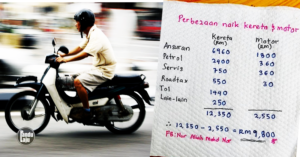 Perbezaan naik kereta & motor
Kereta Motor
(RM) (RM)
Ansuran 6960 1800
Petrol 2400 360
Servis 750 360
Roadtax 550 30
Tol 1440
Lain-lain 250
12,350 2,550
∴ 12,350 - 2,550 = RM 9,800
FB: Nor Mohd Nor